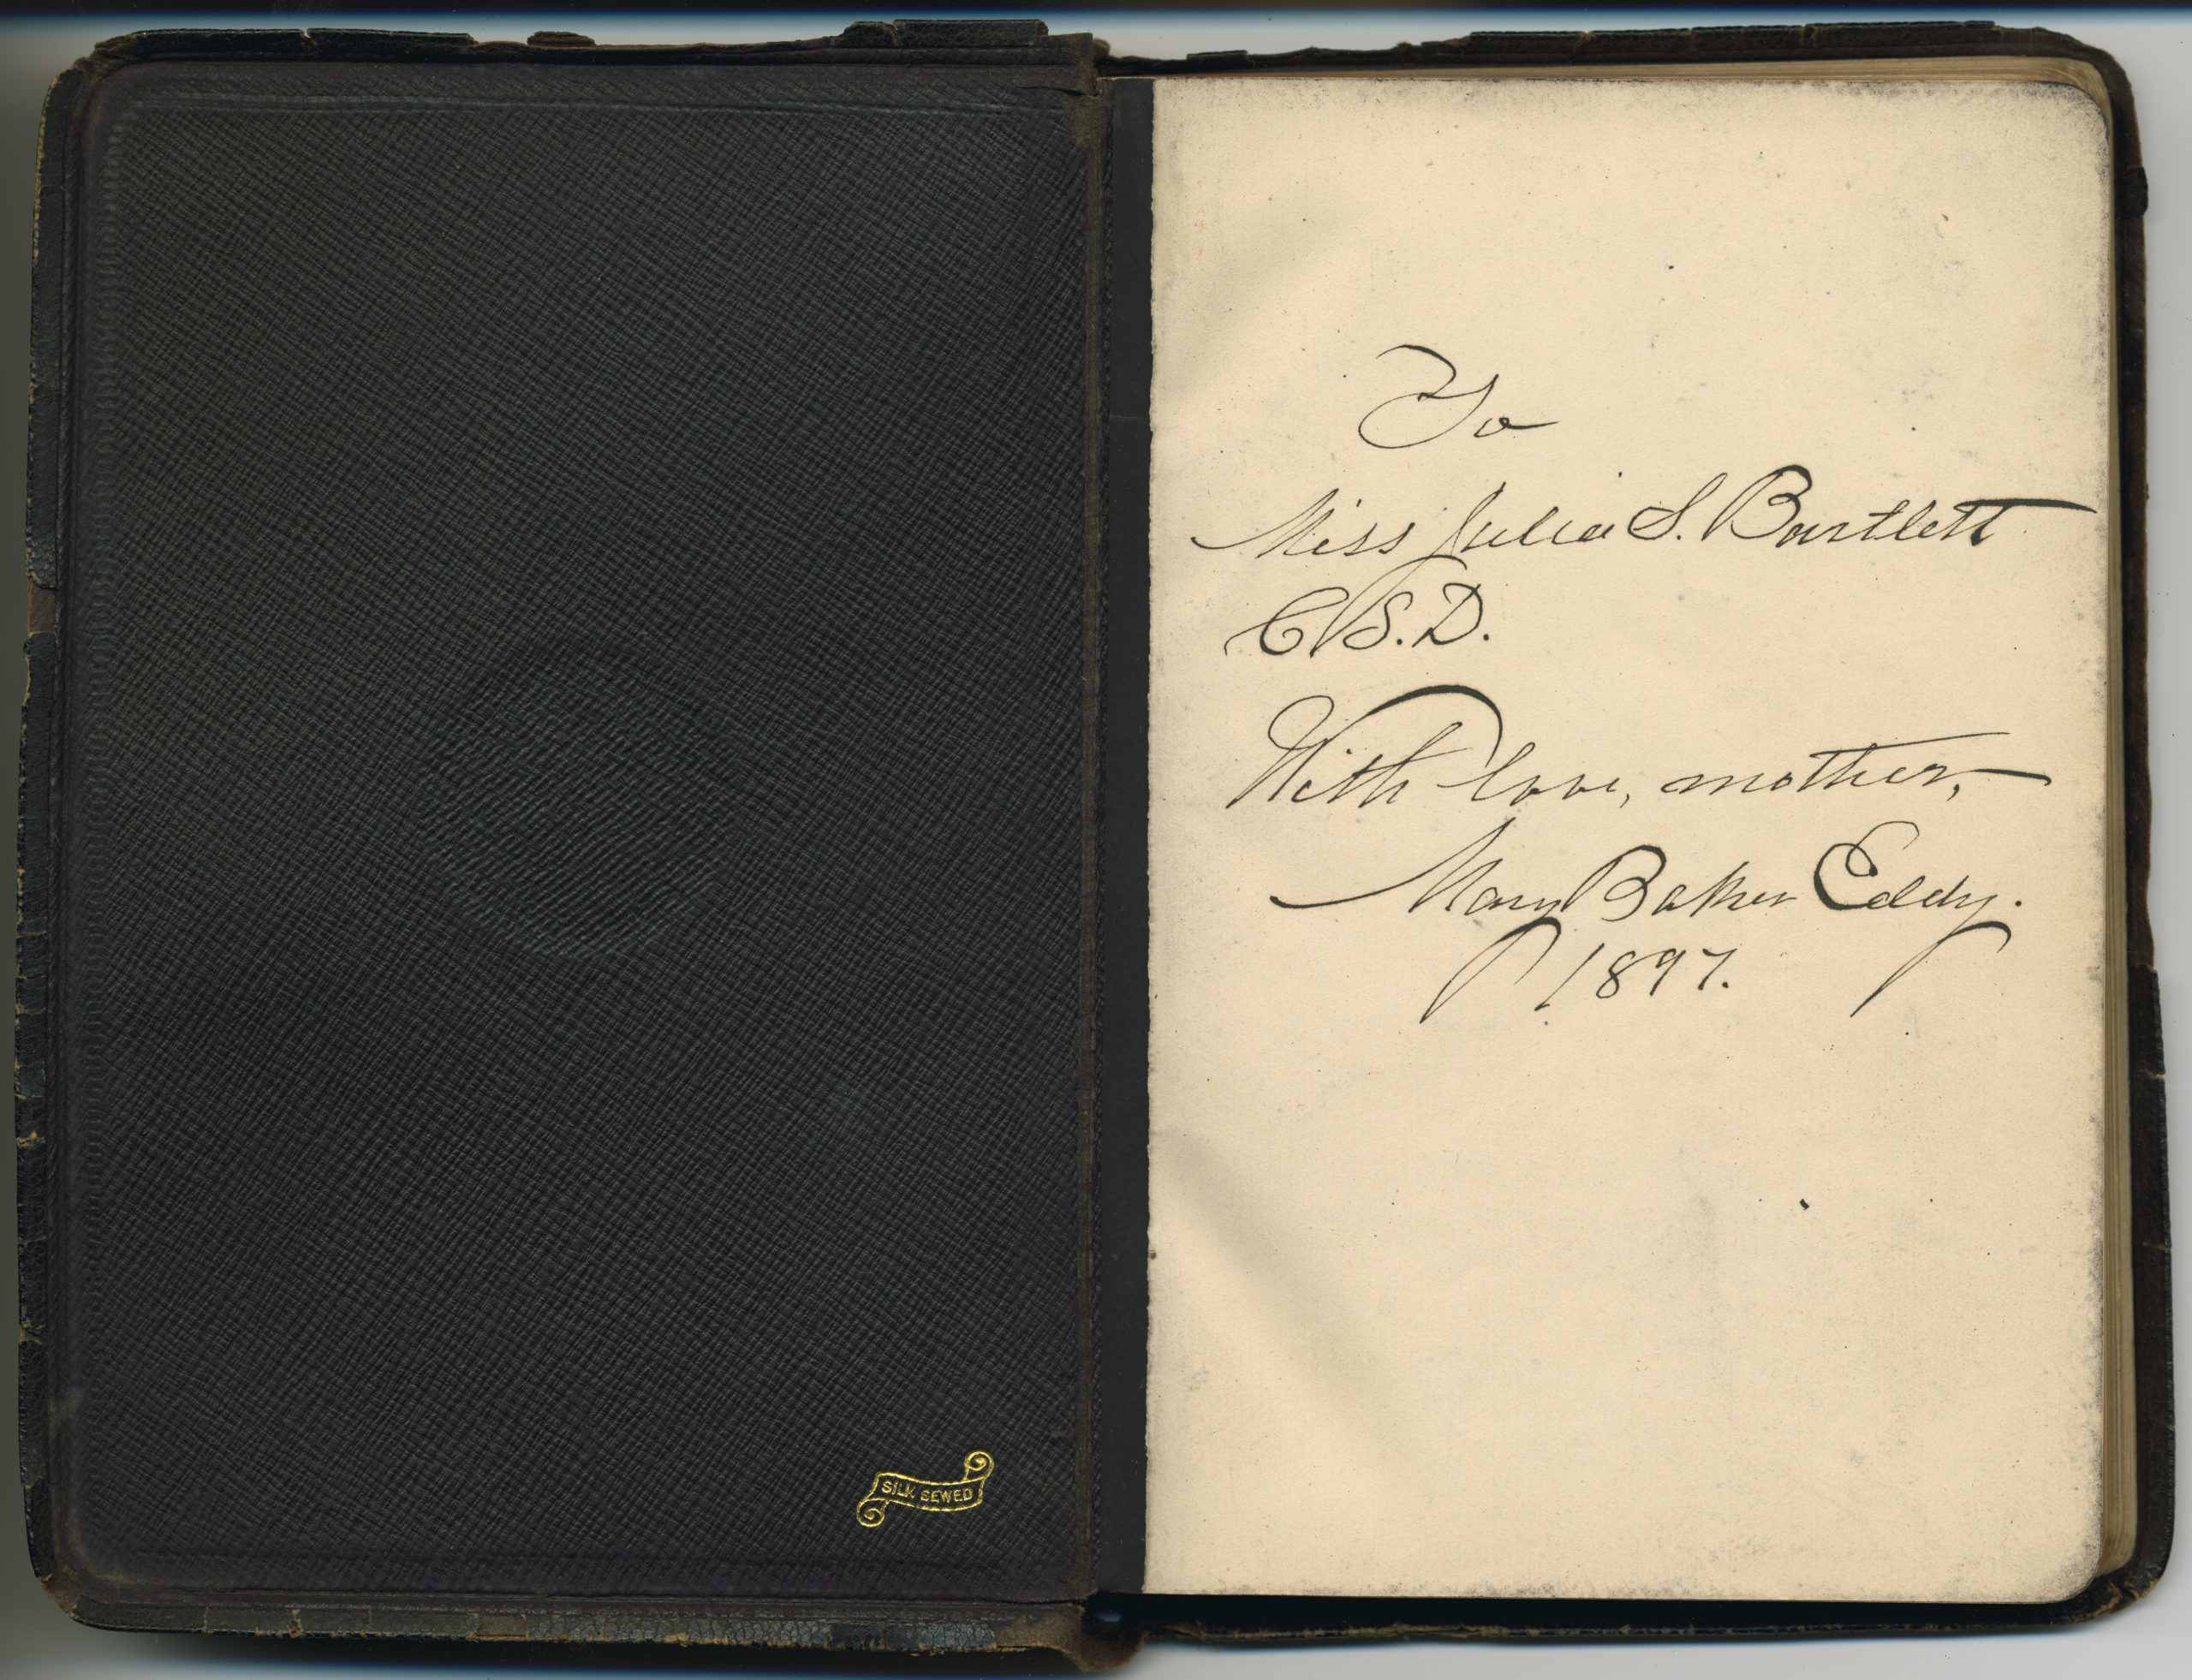 SILK SEWED
To
Miss Julia S. Bartlett
C.S.D.
With love, mother,
Mary Baker Eddy.
1897.